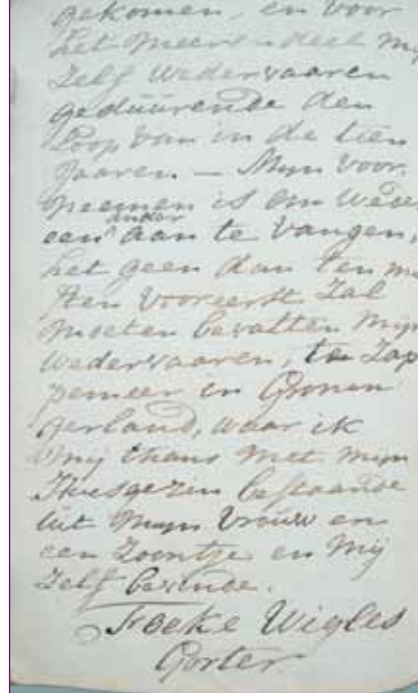 gekomen, en voor
het meere-deel my
zelf wedervaaren
geduurende den
Loop van in de tien
Jaaren. — Myn voor.
neemen is om weder
een ander aan te vangen,
het geen dan ten min
sten vooreerst Zal
moeten bevatten Myn
wedervaaren, te Zap
pemeer in Gronin
gerland, waar ik
mij thans met mijn
Huisgezin bestaande
uit Myn Vrouw en
een Zoontje en Mij
Zelf bevinde.
Froeke Wigles
Gorter